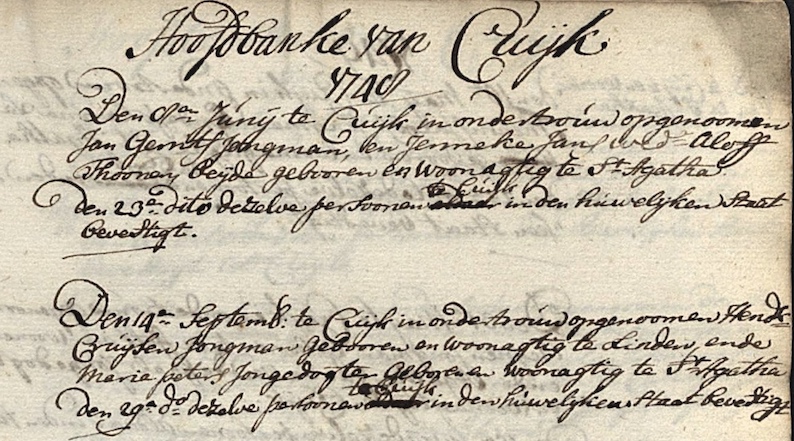 Hoofdbanke van Cuijk
1748
Den 8en Junij te Cuijk in ondertrouw opgenoomen
Jan Gerrits Jongman, en Jenneke Jans wed: Aloff
Thoonen beyde gebooren en woonagtig te St Agatha
te Cuijk
den 23e dito dezelve persoonen in den huwelijken staat
bevestigt.
Den 14en Septemb: te Cuijk in ondertrouw opgenoomen Hendk
Cruijsen Jongman Gebooren en woonagtig te Linden, ende
Maria peters Jongedogter Geboren en woonagtig te St Agatha
te Cuijk
den 29e do dezelve persoonen in den huwelijken staat bevestigt